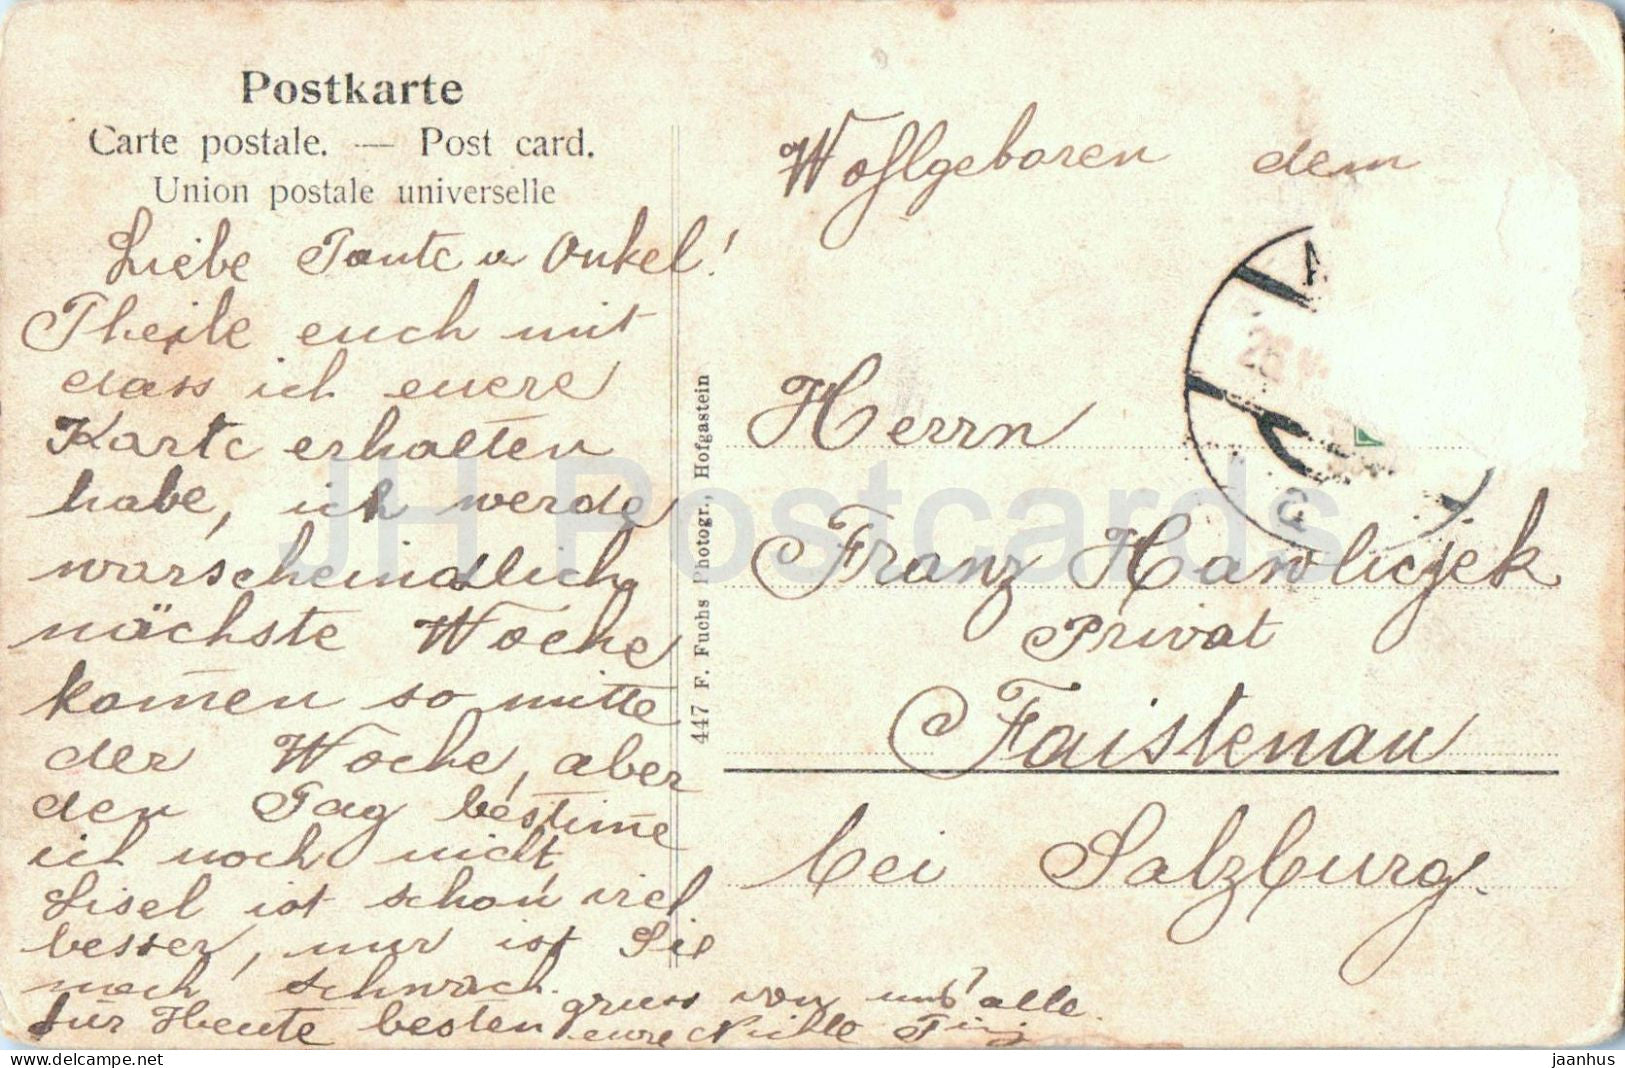 Postkarte
Carte postale. — Post card.
Union postale universelle
Liebe Tante u Onkel!
Theile euch mit
dass ich euere
Karte erhalten
habe, ich werde
warscheindlich
nächste Woche
kom̄en so mitte
der Woche, aber
den Tag bestim̄e
ich noch nicht,
Lisel ist schon viel
besser, nur ist Sie
noch schwach.
für Heute besten gruss von uns alle.
eure Nichte
447 F. Fuchs Photogr., Hofgastein
Wohlgeboren dem
Herrn
Franz Hawlicjek
Privat
Faistenau
bei Salzburg.
26
JH Postcards
delcampe.net
jaanhus